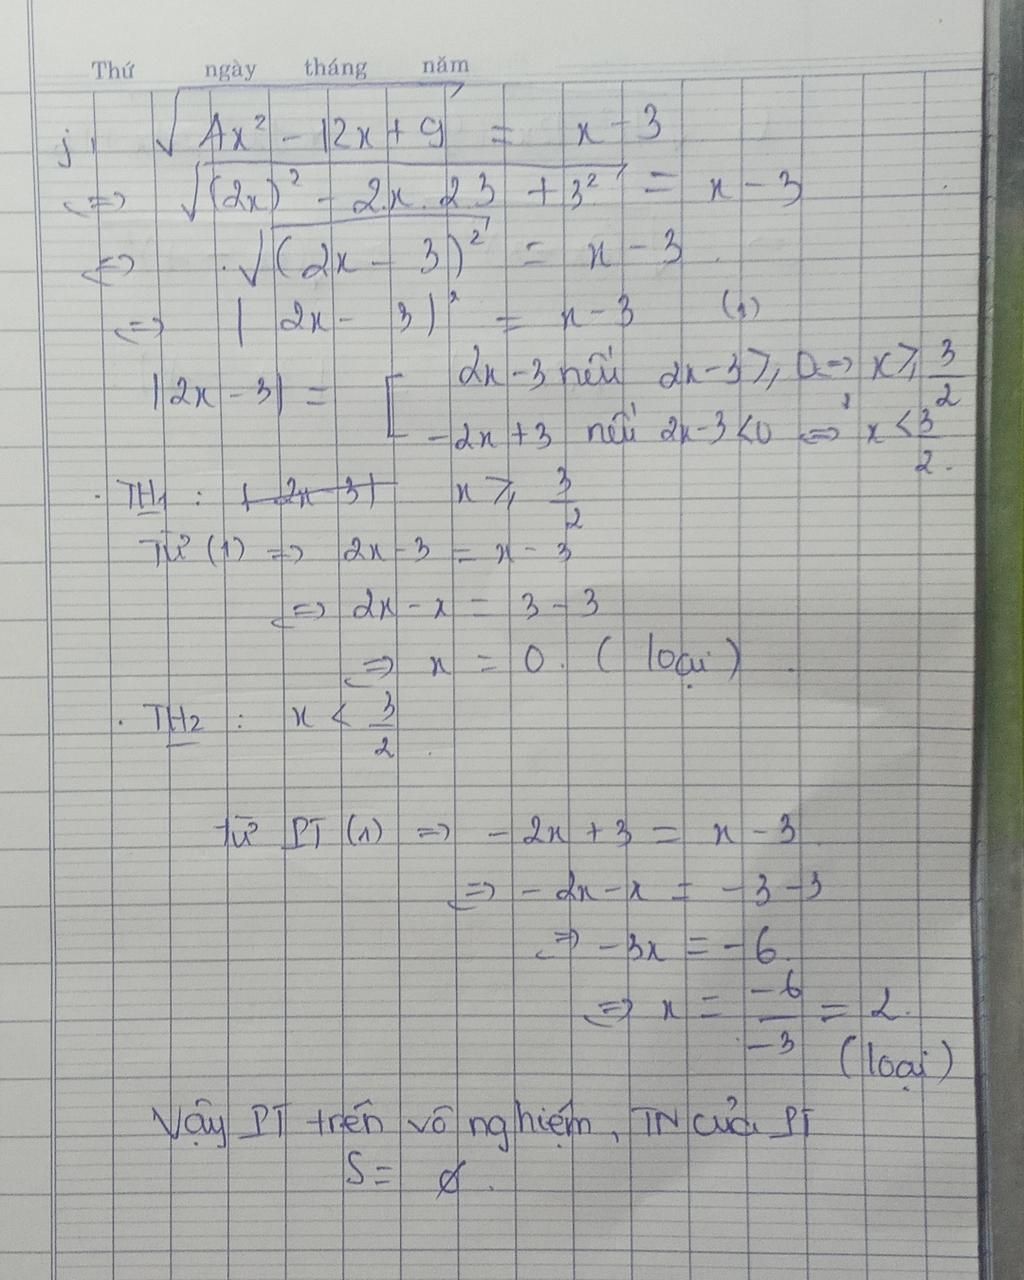 Thứ ngày tháng năm
j, √(4x² - 12x + 9) = x - 3
⇔ √((2x)² - 2.x.2.3 + 3²) = x - 3
⇔ √((2x - 3)²) = x - 3
⇔ |2x - 3|² = x - 3 (1)
|2x - 3| = [ 2x - 3 nếu 2x - 3 ≥ 0 ⇔ x ≥ 3/2
- 2x + 3 nếu 2x - 3 < 0 ⇔ x < 3/2.
. TH1 : x ≥ 3/2
Từ (1) ⇒ 2x - 3 = x - 3
⇔ 2x - x = 3 - 3
⇔ x = 0. (loại)
. TH2 : x < 3/2.
từ PT (1) ⇒ - 2x + 3 = x - 3
⇔ - 2x - x = - 3 - 3
⇔ - 3x = - 6.
⇔ x = -6/-3 = 2.
(loại)
Vậy PT trên vô nghiệm, TN của PT
S = ∅.